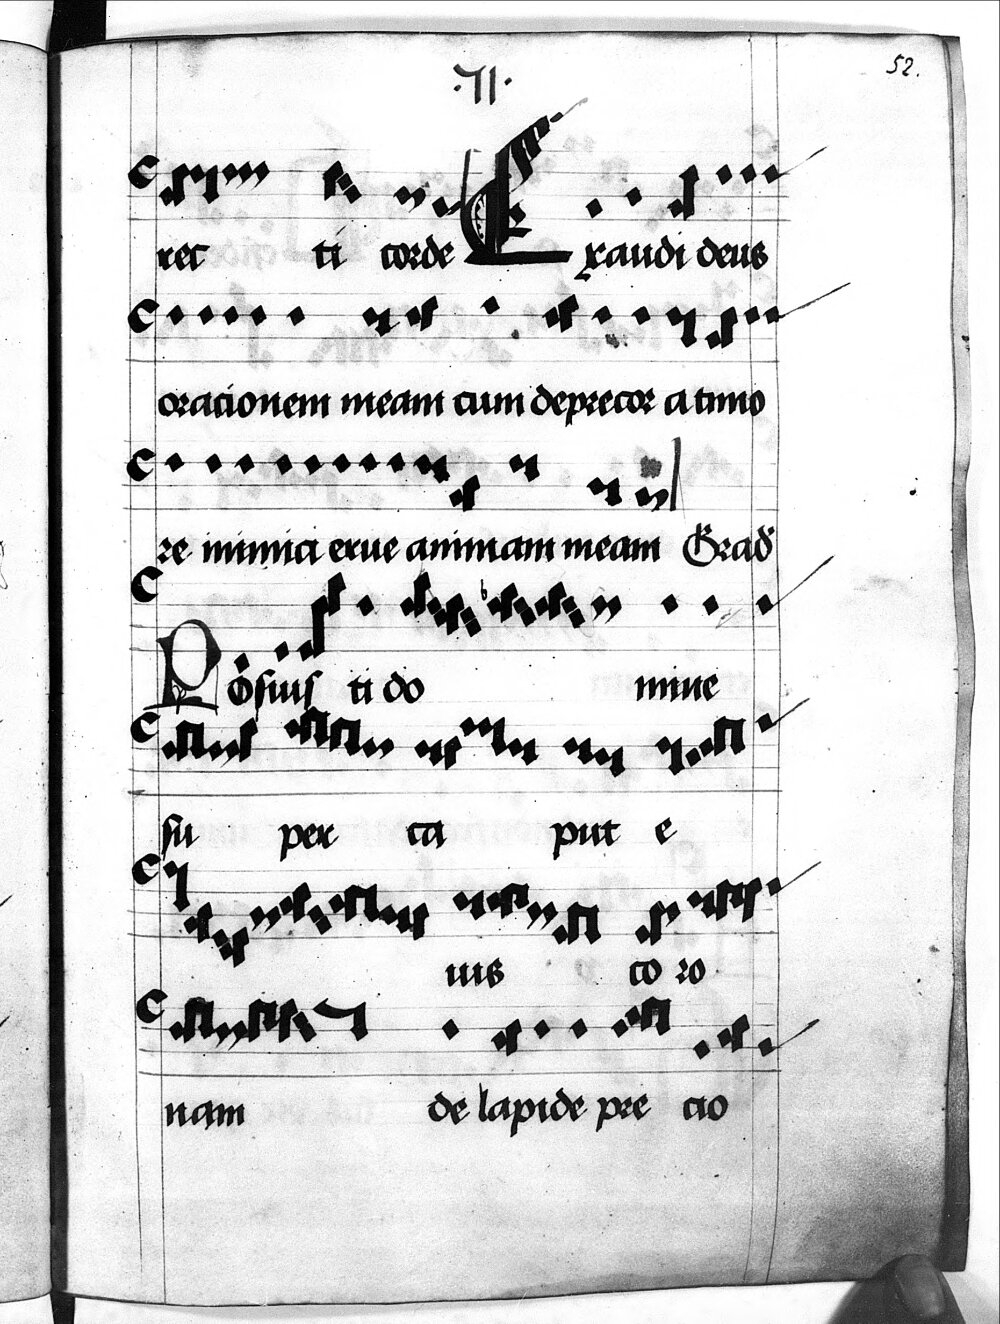 52.
·II·
rec ti corde Exaudi deus
oracionem meam cum deprecor a timo
re inimici erue animam meam Grad̄
Posuisti do mine
su per ca put e
ius co ro
nam de lapide pre cio